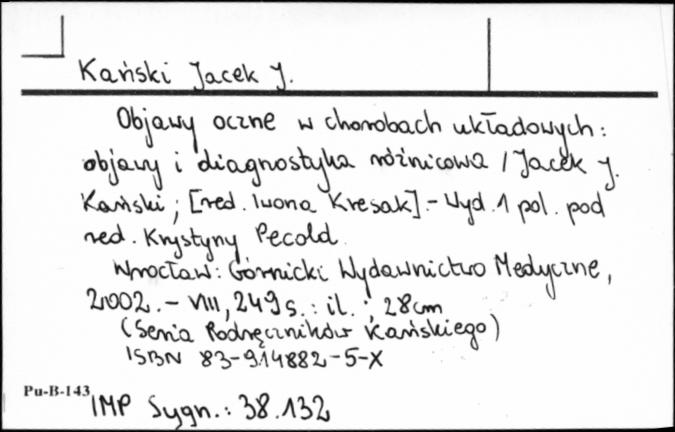 Kański Jacek J.
Objawy oczne w chorobach układowych:
objawy i diagnostyka różnicowa / Jacek J.
Kański ; [red. Iwona Kresak].- Wyd. 1 pol. pod
red. Krystyny Pecold.
Wrocław : Górnicki Wydawnictwo Medyczne,
2002.- VIII, 249 s. : il. ; 28 cm
(Seria Podręczników Kańskiego)
ISBN 83-914882-5-X
Pu-B-143
IMP Sygn.: 38.132